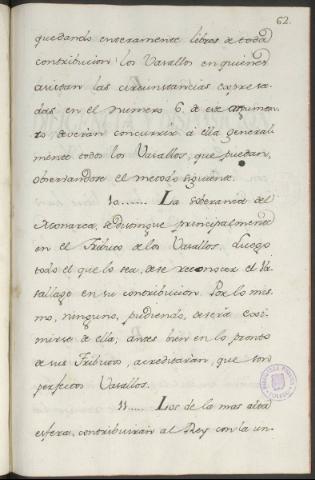 62.
quedando enteramente libres de toda
contribucion los Vasallos en quienes
asistan las circunstancias expresa-
das en el numero 6. de este argumen-
to deverán concurrir á ella general-
mente todos los Vasallos, que puedan,
observandose el metodo siguiente.
10...... La soberania del
Monarca, se distingue principalmente
en el Tributo de los Vasallos. Luego
todo el que lo sea, deve reconocer el Va-
sallage en su contribucion. Por lo mis-
mo, ninguno, pudiendo, deverá exi-
mirse de ella; antes bien en lo pronto
de sus Tributos, acreditarán, que son
perfectos Vasallos.
11..... Los de la mas alta
esfera, contribuirán al Rey con la un-